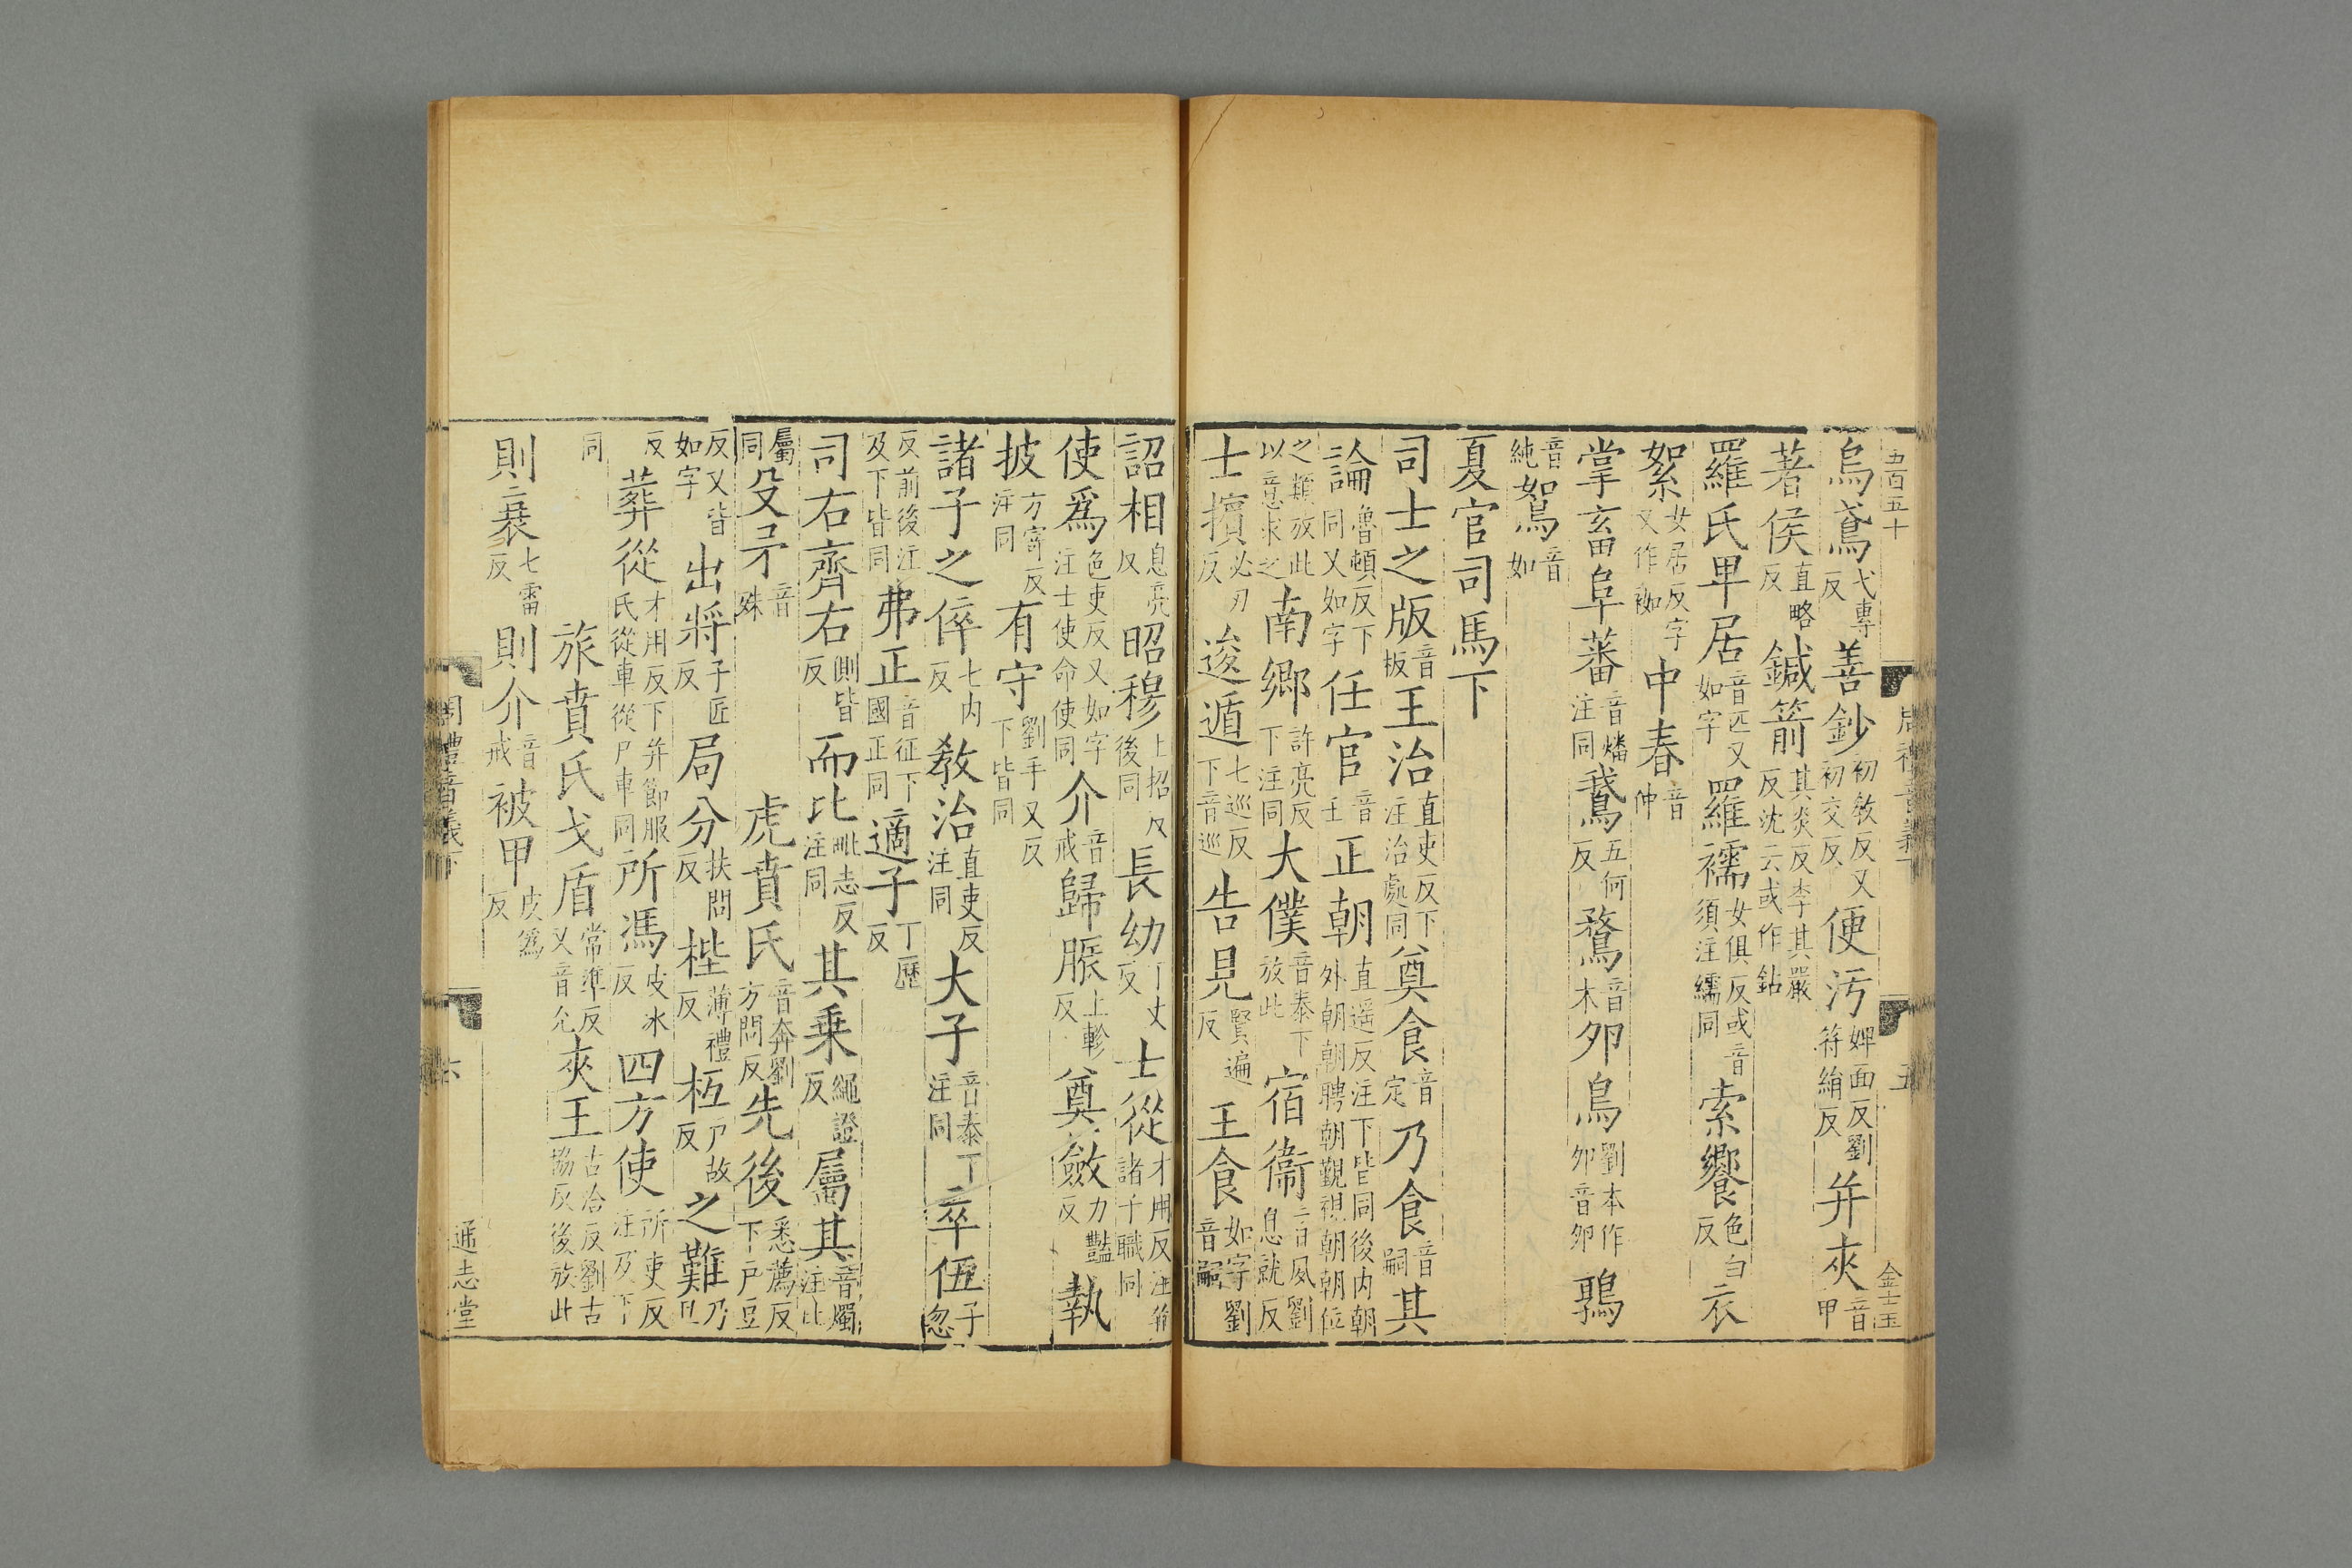 五百五十
烏鳶弋專反善鈔初敎反又初交反便汚婢面反劉符絹反并夾音甲
著侯直略反鍼箭其炎反李其嚴反沈云或作鉆
羅氏卑居音匹又如字羅襦女俱反或音須注繻同索饗色白反衣
絮女居反字又作袽中春音仲
掌畜阜蕃音燔注同鵞五何反鶩音木夘鳥劉本作夘音夘鶉
音純鴽音如
夏官司馬下
司士之版音板王治直吏反下注治處同奠食音定乃食音嗣其
論魯頓反下同又如字任官音壬正朝直遥反注下皆同後内朝外朝朝聘朝覲視朝朝位
之類放此以意求之南鄉許亮反下注同大僕音泰下放此宿衞音夙劉息就反
士擯必刃反逡遁七巡反下音巡告見賢遍反王食如字劉音嗣
五
金士玉
詔相息亮反昭穆上招反後同長幼丁丈反士從才用反注幷諸子職同
使爲色吏反又如字注士使命使同介音戒歸脤上軫反奠斂力豔反執
披方寄反注同有守劉手又反下皆同
諸子之倅七内反敎治直吏反注同大子音泰注同卒伍子忽
反前後注及下皆同弗正音征下國正同適子丁歷反
司右齊右側皆反而比毗志反注同其乗繩證反屬其音燭注比
屬同殳矛音殊虎賁氏音奔劉方問反先後悉薦反下户豆
反又皆如字出將子匠反局分扶問反梐薄禮反枑户故反之難乃旦
反葬從才用反下并節服氏從車從尸車同所馮皮冰反四方使所吏反注乃下
同旅賁氏戈盾常準反又音允夾王古洽反劉古協反後放此
則衰七雷反則介音戒被甲皮爲反
周禮音義下
六
通志堂